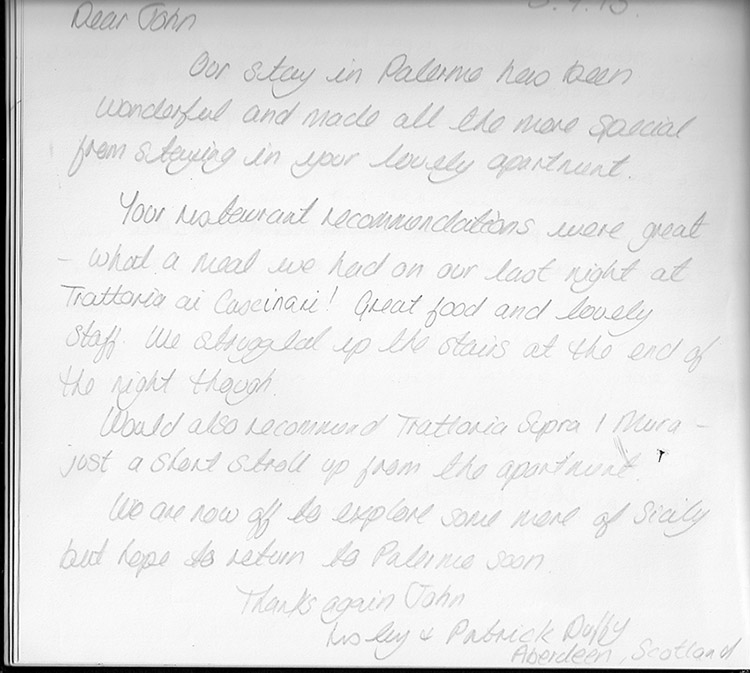 Dear John
Our stay in Palermo has been
wonderful and made all the more special
from staying in your lovely apartment.
Your restaurant recommendations were great
- what a meal we had on our last night at
Trattoria ai Cascinari! Great food and lovely
staff. We struggled up the stairs at the end of
the night though.
Would also recommend Trattoria Supra I Mura -
just a short stroll up from the apartment.
We are now off to explore some more of Sicily
but hope to return to Palermo soon
Thanks again John
Lesley + Patrick Duffy
Aberdeen, Scotland